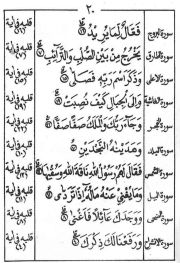 ٢٠
سورة البروج فَعَّالٌ لِمَا يُرِيدُ قلبه في آية
سورة الطارق يَخْرُجُ مِنْ بَيْنِ الصُّلْبِ وَالتَّرَائِبِ قلبه في آية
سورة الاعلى وَذَكَرَ اسْمَ رَبِّهِ فَصَلَّى قلبه في آية
سورة الغاشية وَإِلَى الْجِبَالِ كَيْفَ نُصِبَتْ قلبه في آية
سورة الفجر وَجَاءَ رَبُّكَ وَالْمَلَكُ صَفًّا صَفًّا قلبه في آية
سورة البلد وَهَدَيْنَاهُ النَّجْدَيْنِ قلبه في آية
سورة الشمس فَقَالَ لَهُمْ رَسُولُ اللَّهِ نَاقَةَ اللَّهِ وَسُقْيَاهَا قلبه في آية
سورة الليل وَمَا يُغْنِي عَنْهُ مَالُهُ إِذَا تَرَدَّى قلبه في آية
سورة الضحى وَوَجَدَكَ عَائِلًا فَأَغْنَى قلبه في آية
سورة الانشراح وَرَفَعْنَا لَكَ ذِكْرَكَ قلبه في آية